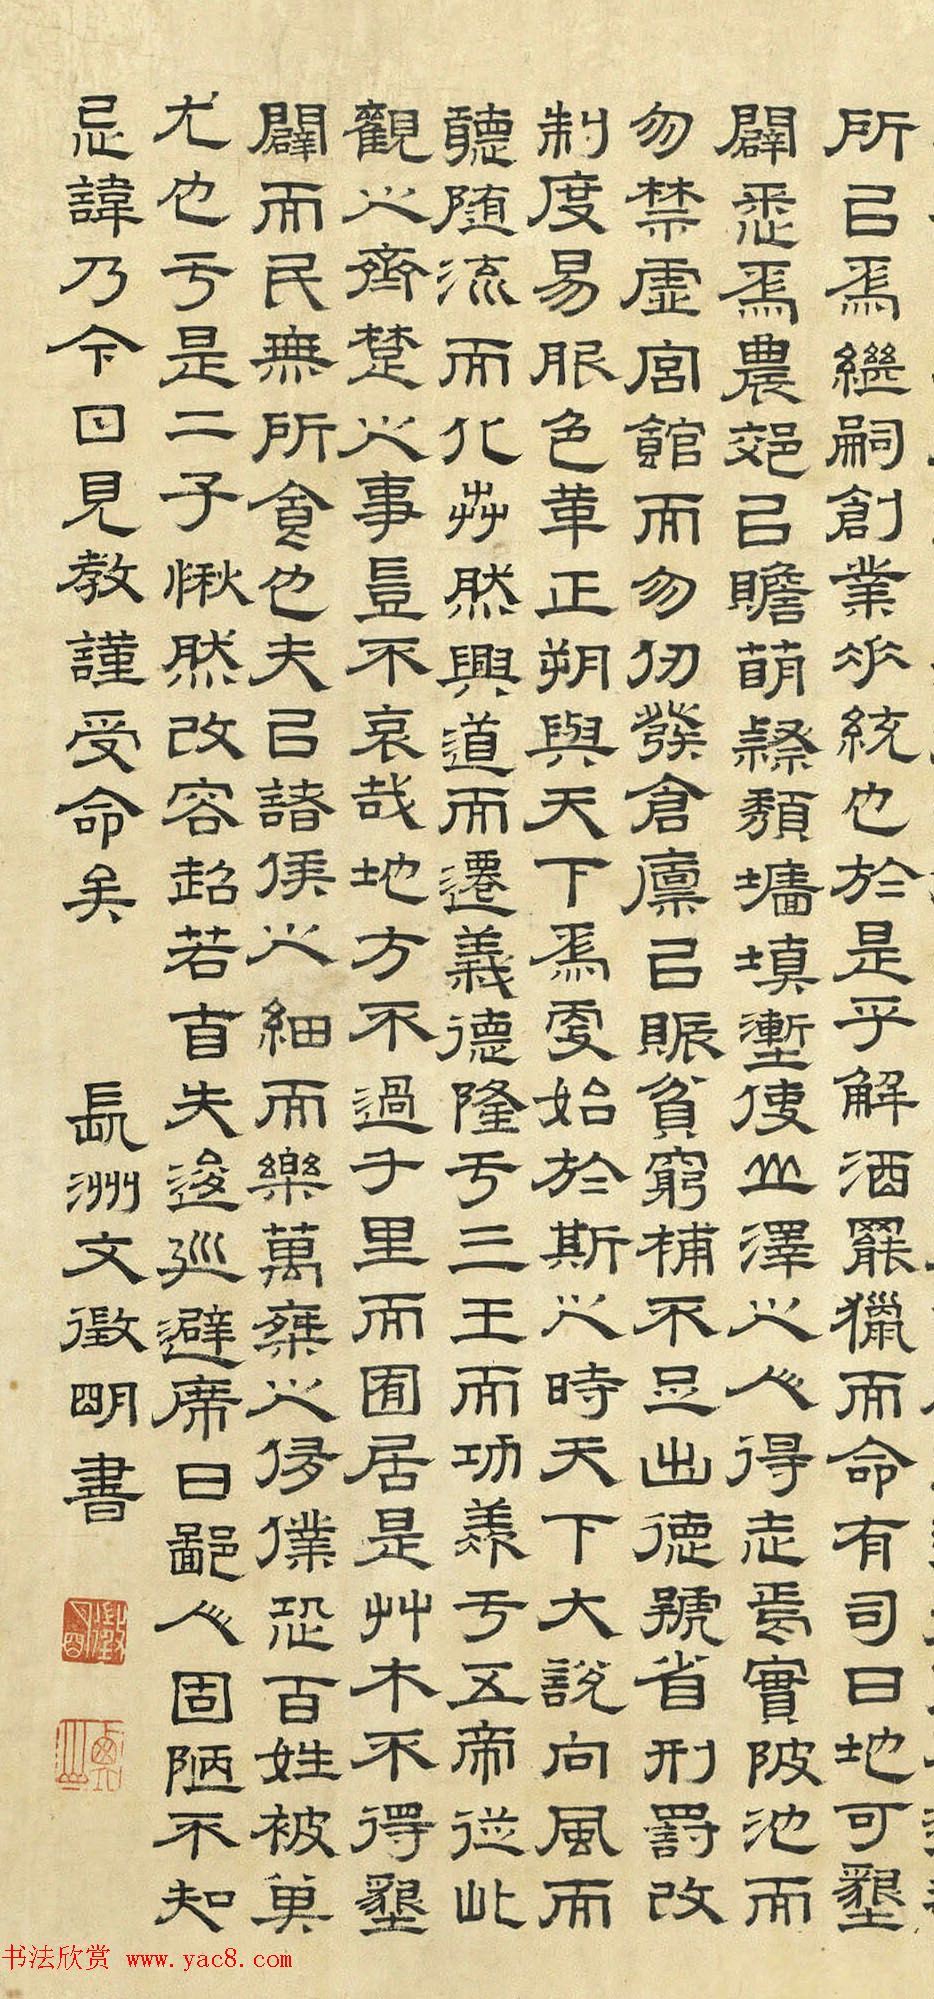 所㠯為繼嗣創業垂統也於是乎解酒罷獵而命有司曰地可墾
闢悉為農郊㠯贍萌隸頹墻填塹使山澤之人得走焉實陂池而
勿禁虛宮館而勿仞發倉廩㠯賑貧窮補不足出德號省刑罰改
制度易服色革正朔與天下為更始於斯之時天下大說向風而
聽隨流而化芔然興道而遷義德隆于三王而功羨于五帝從此
觀之齊楚之事豈不哀哉地方不過千里而囿居是艸木不得墾
闢而民無所食也夫㠯諸侯之細而樂萬乘之侈僕恐百姓被其
尤也于是二子愀然改容超若自失逡巡避席曰鄙人固陋不知
忌諱乃今日見教謹受命矣 長洲文徵明書
徵明
书法欣赏 www.yac8.com